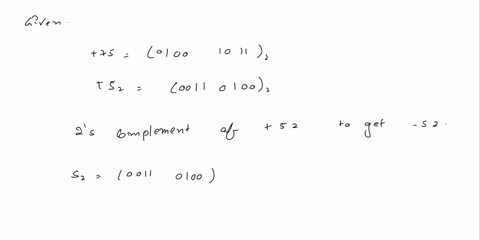 Given.
+75 = (0100 1011)₂
+52 = (0011 0100)₂
2's complement of +52 to get -52.
52 = (0011 0100)